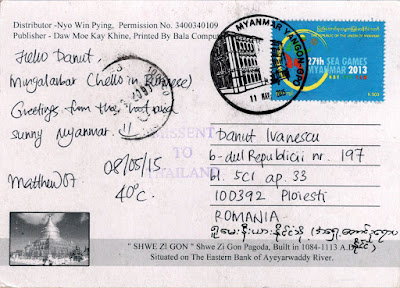 Distributor -Nyo Win Pying, Permission No. 3400340109
Publisher - Daw Moe Kay Khine, Printed By Bala Compu
Hello Danut,
Mingalarbar (hello in
Greetings from the hot and
sunny Myanmar !!
08/05/15
40°C.
Matthew
MISSENT
TO
THAILAND
MYANMAR YANGON G.P.O
11 MAY
27th SEA GAMES
MYANMAR 2013
Danut Ivanescu
b-dul Republicii nr. 197
bl. 5C1 ap. 33
100392 Ploiesti
ROMANIA
" SHWE ZI GON " Shwe Zi Gon Pagoda, Built in 1084-1113 A.D
Situated on The Eastern Bank of Ayeyarwaddy River.